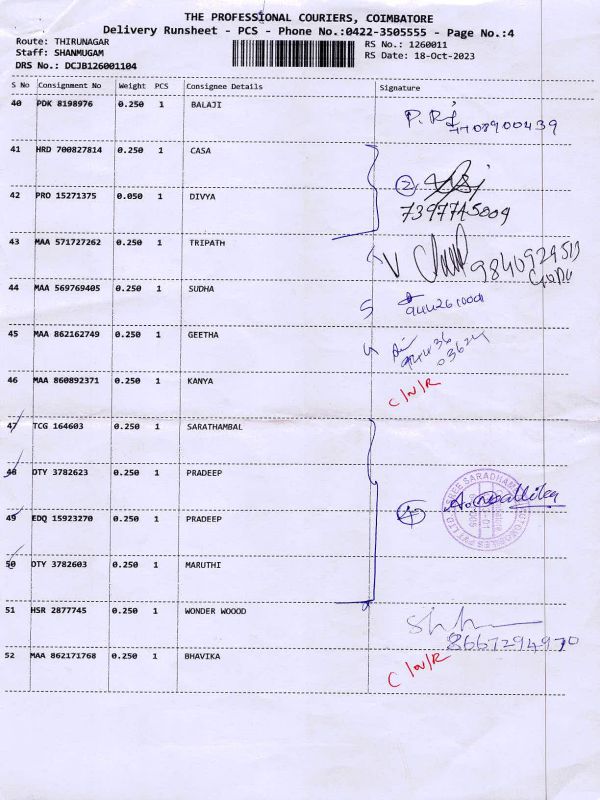 THE PROFESSIONAL COURIERS, COIMBATORE
Delivery Runsheet - PCS - Phone No.:0422-3505555 - Page No.:4
Route: THIRUNAGAR
Staff: SHANMUGAM
DRS No.: DCJB126001104
RS No.: 1260011
RS Date: 18-Oct-2023
S No Consignment No Weight PCS Consignee Details Signature
40 PDK 8198976 0.250 1 BALAJI
7708900439
41 HRD 700827814 0.250 1 CASA
42 PRO 15271375 0.050 1 DIVYA
2
7397745009
43 MAA 571727262 0.250 1 TRIPATH
44 MAA 569769405 0.250 1 SUDHA
45 MAA 862162749 0.250 1 GEETHA
03624
46 MAA 860892371 0.250 1 KANYA C/N/R
47 TCG 164603 0.250 1 SARATHAMBAL
48 DTY 3782623 0.250 1 PRADEEP
49 EDQ 15923270 0.250 1 PRADEEP
4
50 DTY 3782603 0.250 1 MARUTHI
51 HSR 2877745 0.250 1 WONDER WOOOD
8667294970
52 MAA 862171768 0.250 1 BHAVIKA C/N/R